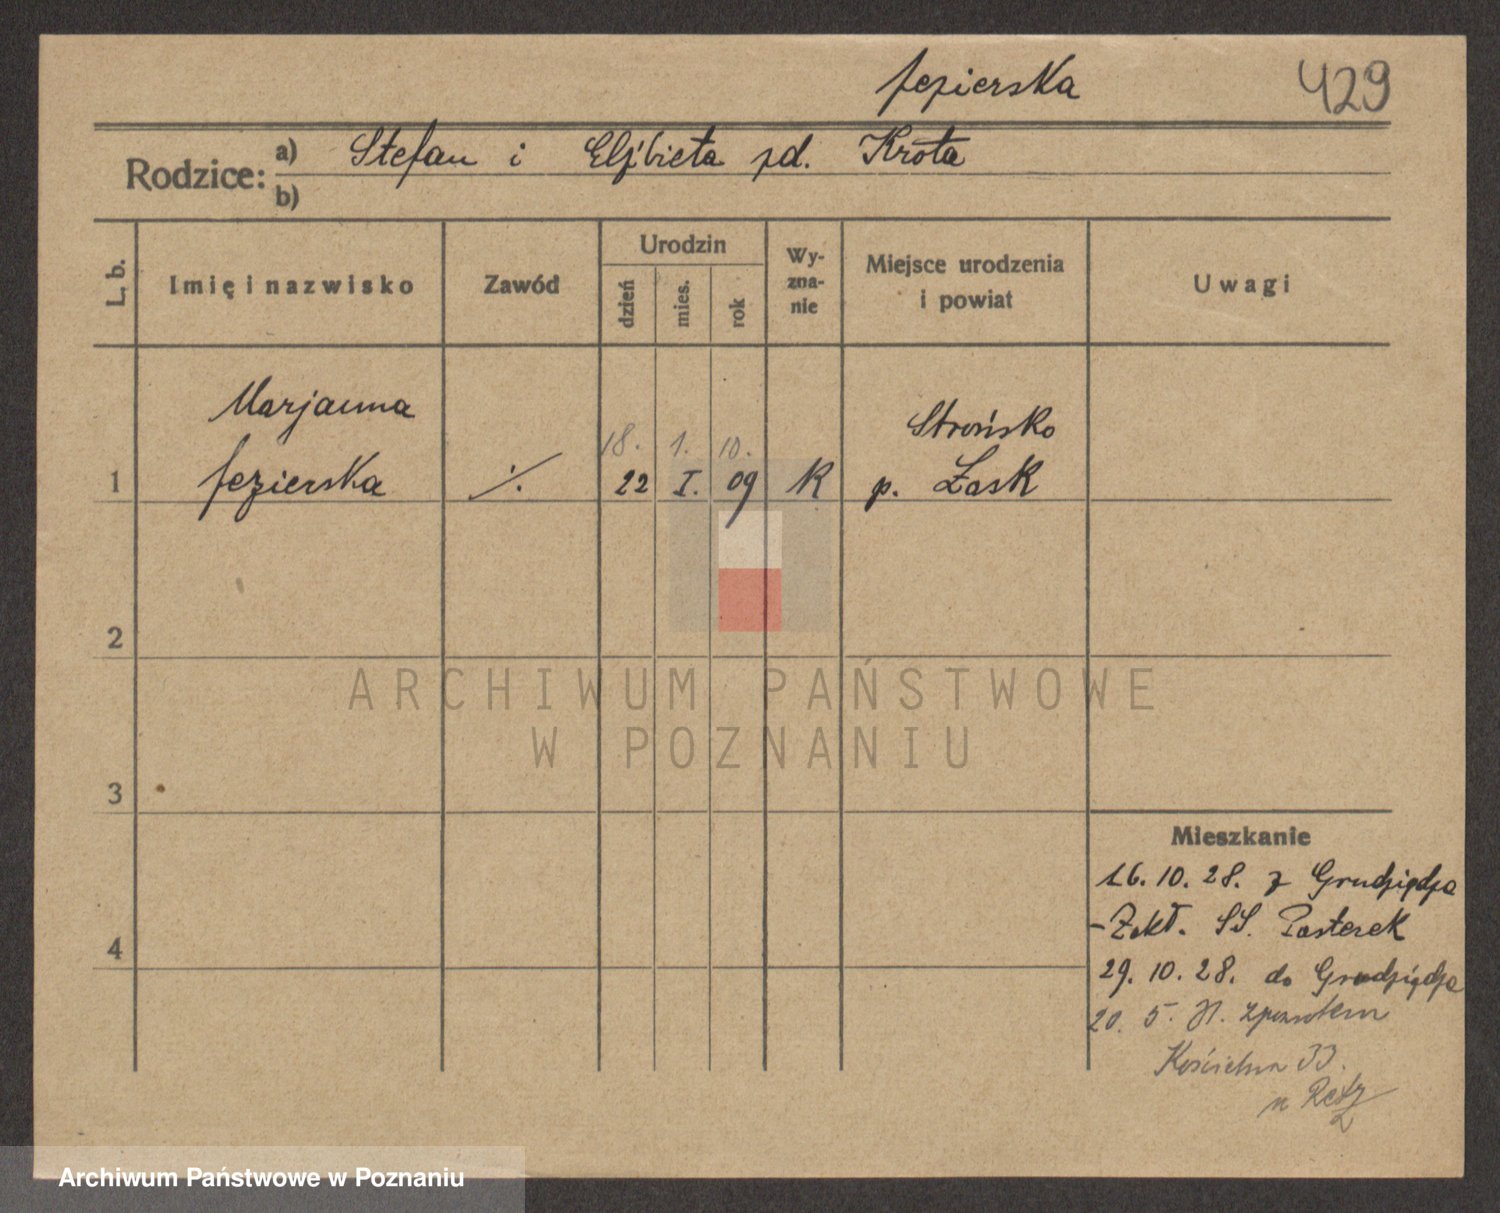 Jezierska 429
Rodzice: a) Stefan i Elżbieta zd. Krota
b)
L. b.
Imię i nazwisko
Zawód
Urodzin
dzień
mies.
rok
Wy-
zna-
nie
Miejsce urodzenia
i powiat
Uwagi
Marjanna
18. 1. 10.
Strońsko
1 Jezierska ./. 22 I. 09 K p. Łask
2
ARCHIWUM PAŃSTWOWE
W POZNANIU
3
Mieszkanie
16. 10. 28. z Grudziądza
4
- Zakł. SS. Pasterek
29. 10. 28. do Grudziądza
20. 5. 31. zpowrotem
Kościelna 33.
u
Archiwum Państwowe w Poznaniu